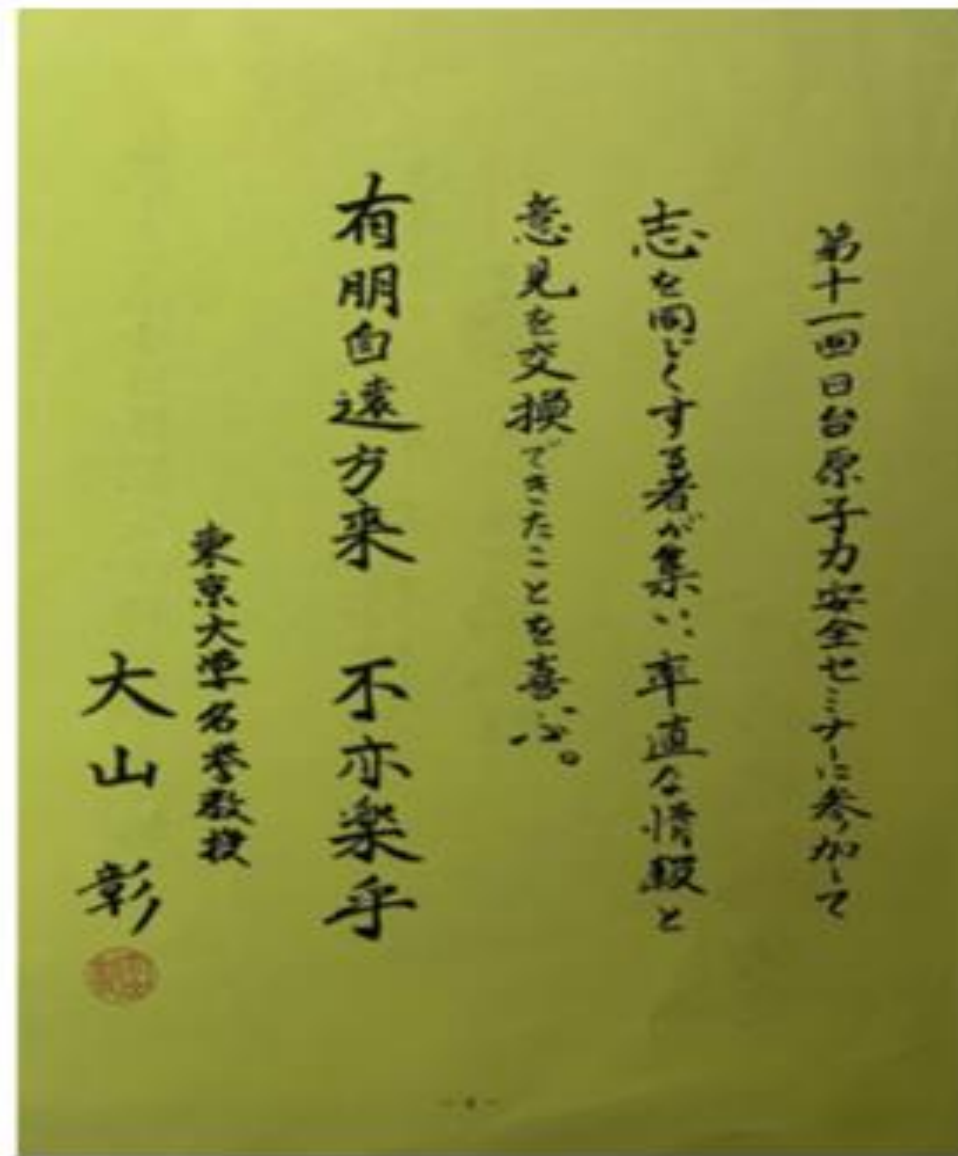 第十一回日台原子力安全セミナーに参加して
志を同じくする者が集い、率直な情報と
意見を交換できたことを喜ぶ。
有朋自遠方来　不亦楽乎
東京大学名誉教授
大山　彰